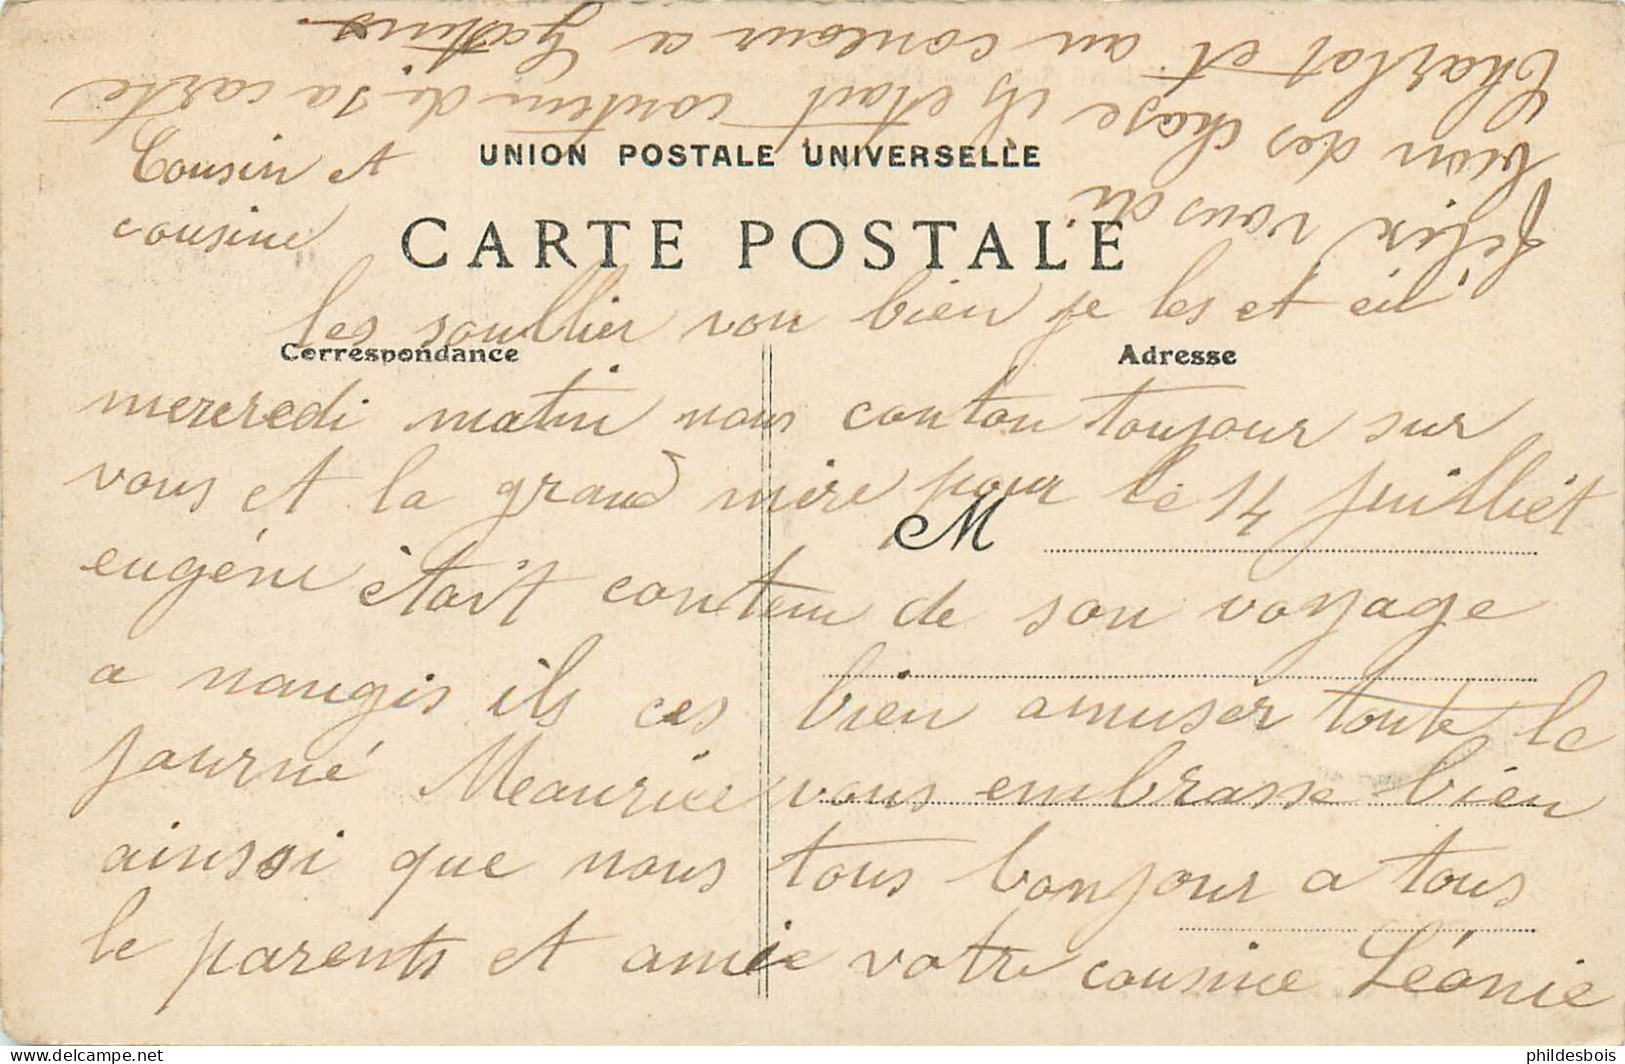 UNION POSTALE UNIVERSELLE
CARTE POSTALE
Correspondance
Adresse
M
Cousin et
cousine
les soullier von bien je les et eù
mercredi matin nous conton toujour sur
vous et la grand mère pour le 14 juilliét
eugéne étoit conten de son voyage
a nangis ils ces bien amuser toute le
journé Meaurice vous embrasse bien
ainssi que nous tous bonjour a tous
le parents et amie votre cousine Léonie
félix vous di
bion des chose ils était conten de sa carte
Charlot et au conlour a
phildesbois